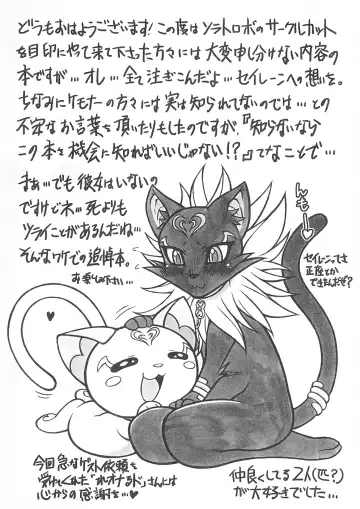 どうもおはようございます！この度はソラトロボのサークルカット
を目印にやって来て下さった方々には大変申し分けない内容の
本ですが…オレ…全て注ぎこんだよ…セイレーンへの想いを。
ちなみにケモナーの方々には実は知られてないのでは…との
不安なお言葉を頂いたりもしたのですが、『知らないなら
この本を機会に知ればいいじゃない！？』てなことで…
まぁ…でも彼女はいないの
ですけどネ…死よりも
ツライことがあるんだね…
そんなワケでの追悼本。
お楽しみ下さい…
んもー
セイレーンって
正座とか
できたんだぜ？
今回急なゲスト依頼を
受けてくれた
さんには
心からの感謝を…♥
仲良くしてる2人(匹？)
が大好きでした…